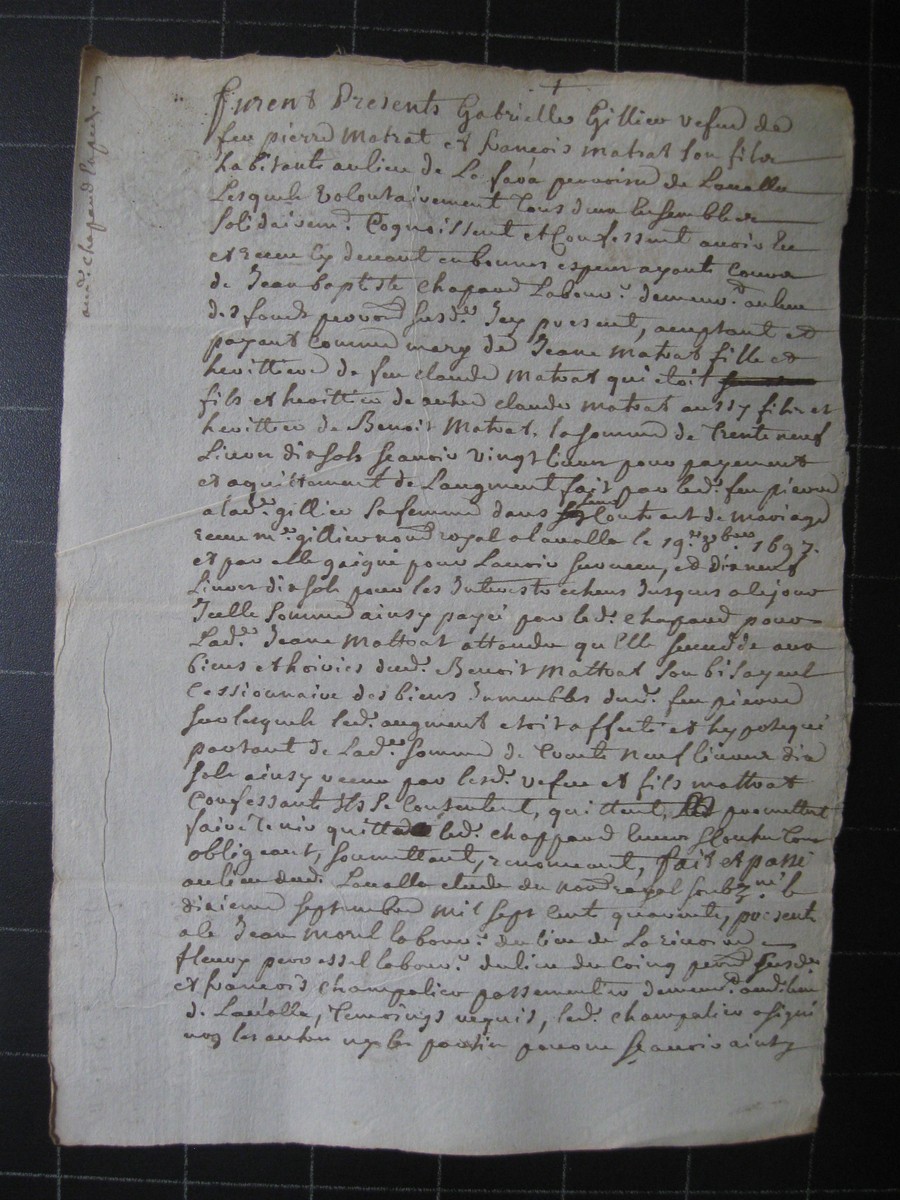 aud. chapard
furent Presents Gabrielle Gillier vefue de
feu pierre Matrat et francois matrat son fils
habitants au lieu de La fava perroisse de Lavalla
Lesquels volontairement Tous deux Ensemblem
Solidairemt. Cognoissent et Confessent avoir Eu
et Receu Cy devant en bonnes especes ayants Cours
de Jean baptiste chapard Labourr. demeurt. au lieu
des fonds perroisse susd. Icy present, acceptant et
payant Comme mary de Jeane Matrat fille et
heritiere de feu claude Matrat qui etoit
fils et heritier de autre claude Matrat aussy fils et
heritier de Benoit Matrat, la somme de Trente neuf
Livres dix sols scavoir vingt livres pour payement
et aquittement de Laugment fait par led. feu pierre
a lad. gillier sa femme dans Leur Contract de mariage
receu me. gillier notre royal a lavalla le 19e. 8bre. 1697.
et par elle gaigné pour L'avoir survecu, et dix neuf
Livres dix sols pour les Interests echeus Jusques a ce jour
Icelle somme ainsy payée par led. chapard pour
Lad. Jeane Mattrat attendu qu'Elle succede aux
biens et hoiries dud. Benoit Mattrat son bisayeul
Cessionnaire des biens Immeubles dud. feu pierre
sur lesquels led. augment etoit affecté et hypotequé
partant de Lade. somme de Trente neuf livres dix
sols ainsy receue par lesd. vefue et fils mattrat
Confessants ils se Contentent, quittent, promettent
faire Tenir quitte led. chappard envers et contre Tous
obligeant, soumettant, renonceant, fait et passé
au lieu dudi Lavalla etude du notre royal soubzne. le
dixieme septembre mil sept cent quarante, presents
a ce Jean Morel labourr. du lieu de La
fleury labourr. du lieu du Coing perr. susde
et francois champalier passementier demeurt. audi lieu
de Lavalla, Temoings requis, led. champalier a signé
non les autres ny les parties pour ne scavoir ainsy